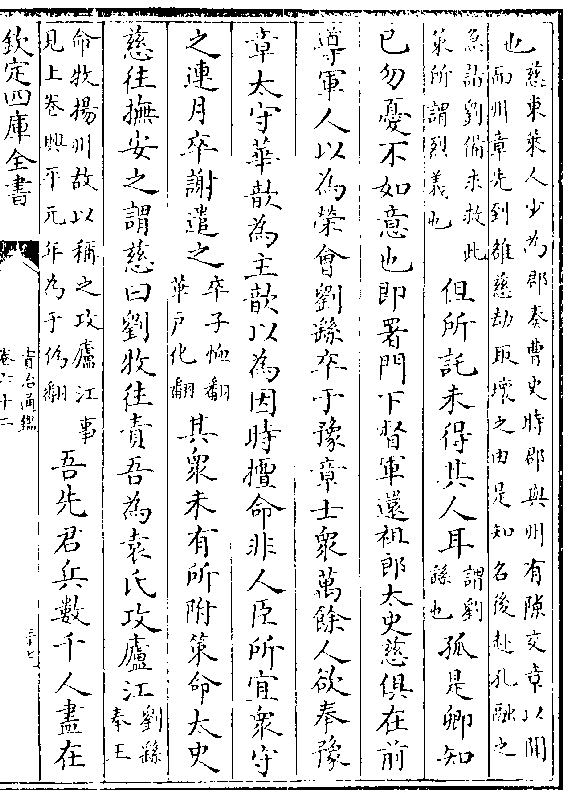 也慈東萊人少為郡奏曹史時郡與州有隙交章以聞
而州章先到雒慈劫取壞之由是知名後赴孔融之
急詣劉備求救此
策所謂烈義也
但所託未得其人耳
謂劉
繇也
孤是卿知
已勿憂不如意也即署門下督軍還祖郎太史慈俱在前
導軍人以為榮會劉繇卒于豫章士衆萬餘人欲奉豫
章太守華歆為主歆以為因時擅命非人臣所宜衆守
之連月卒謝遣之
卒子恤翻
華戶化翻
其衆未有所附策命太史
慈往撫安之謂慈曰劉牧往責吾為袁氏攻廬江
劉繇
奉王
命牧揚州故以稱之攻廬江事
見上卷興平元年為于偽翻
吾先君兵數千人盡在
欽定四庫全書
資治通鑑
卷六十二
三十七